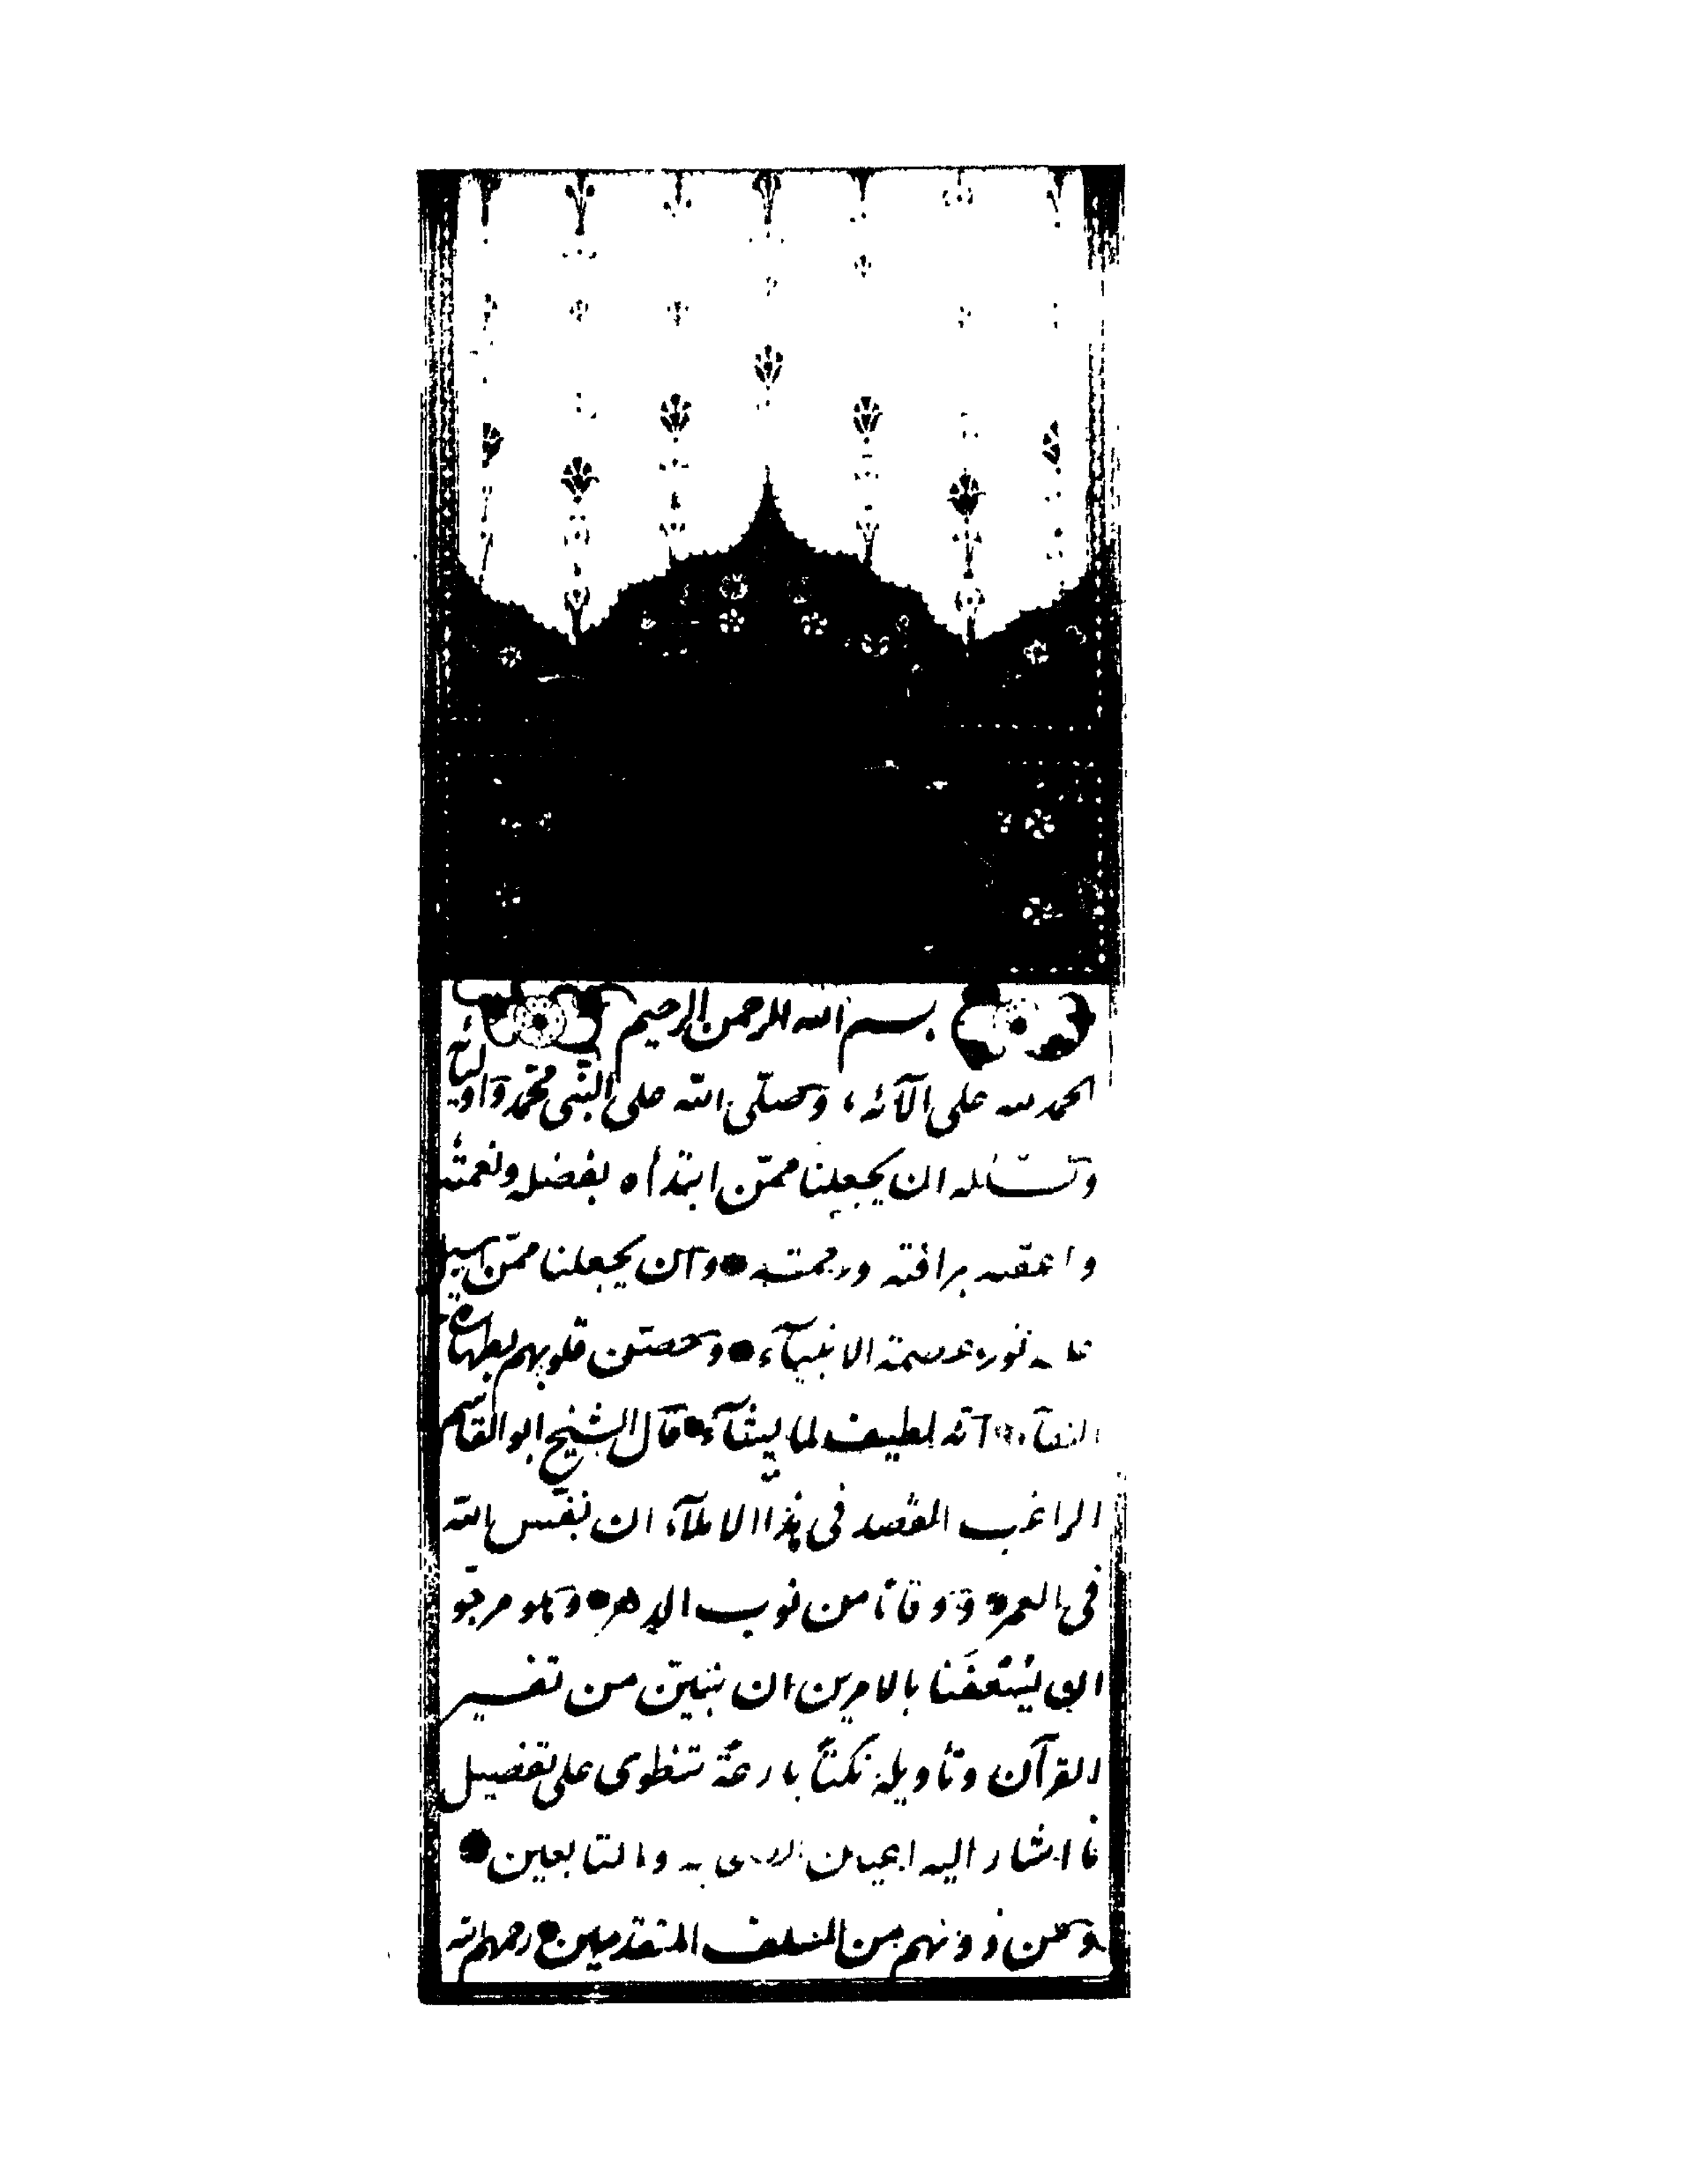 بسم الله الرحمن الرحيم
الحمد لله على آلآئه، وصلّى الله على النبى محمّد وآوليائه
ونسئله ان يجعلنا ممّن ابتدأه بفضله ونعمته
واعقبه برافته ورحمته وآن يجعلنا ممّن
نوره عصمة الانبيآء وحصّن قلوبهم بطهارة
النقآء آنه لطيف لما يشآء قآل الشيخ ابو القاسم
الراغب المقصد فى هذا الاملآء ان نفّس الله
فى العمر ووقانا من نوب الدهر وهو مرجو
ان يسعفنا بالامرين ان نبيّن من تفسير
القرآن وتأويله نكتاً بارعة تنطوى على تفصيل
ما اشار اليه اعيان الصحابه والتابعين
ومن دونهم من السلف المتقدمين رحمهم الله